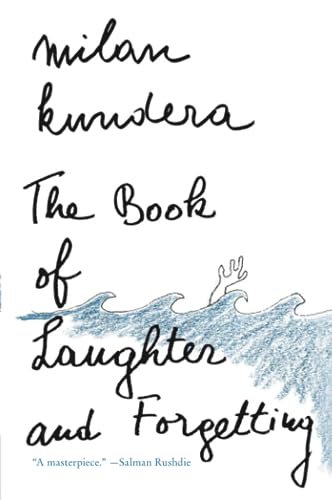 milan
kundera
The Book
of
Laughter
and Forgetting
“A masterpiece.” —Salman Rushdie